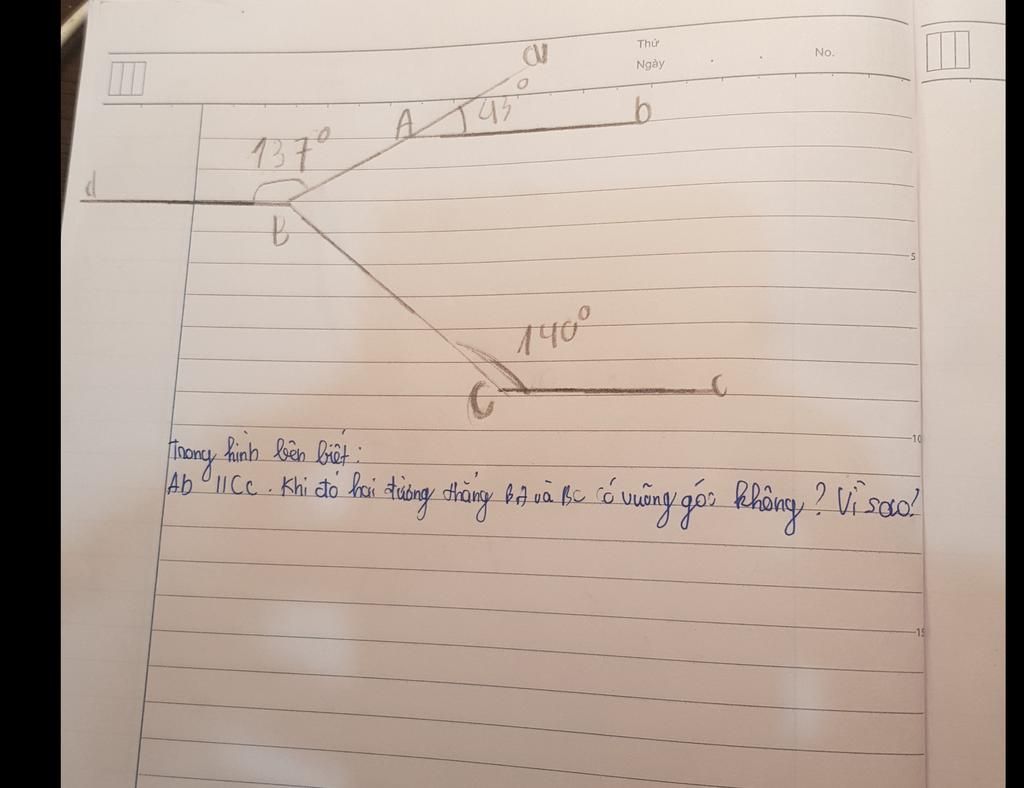 Thứ
Ngày . . No.
a
43°
A
b
137°
d
B
5
140°
C
c
10
Trong hình bên biết:
Ab // Cc. Khi đó hai đường thẳng BA và BC có vuông góc không? Vì sao?
15